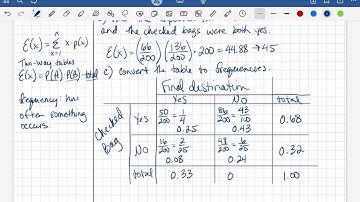 E(x) = Σ x·p(x)
n
x=1
Two-way tables
E(x) = P(A) P(B) total
frequency: how
often something
occurs.
the checked bags were both yes.
E(x) = (66/200)(136/200)·200 = 44.88 → 45
c) convert the table to frequencies.
Final destination
Yes No total
Checked Bag
Yes 50/200 = 1/4 86/200 = 43/100 0.68
0.25 0.43
No 16/200 = 2/25 48/200 = 6/25 0.32
0.08 0.24
total 0.33 0 1.00